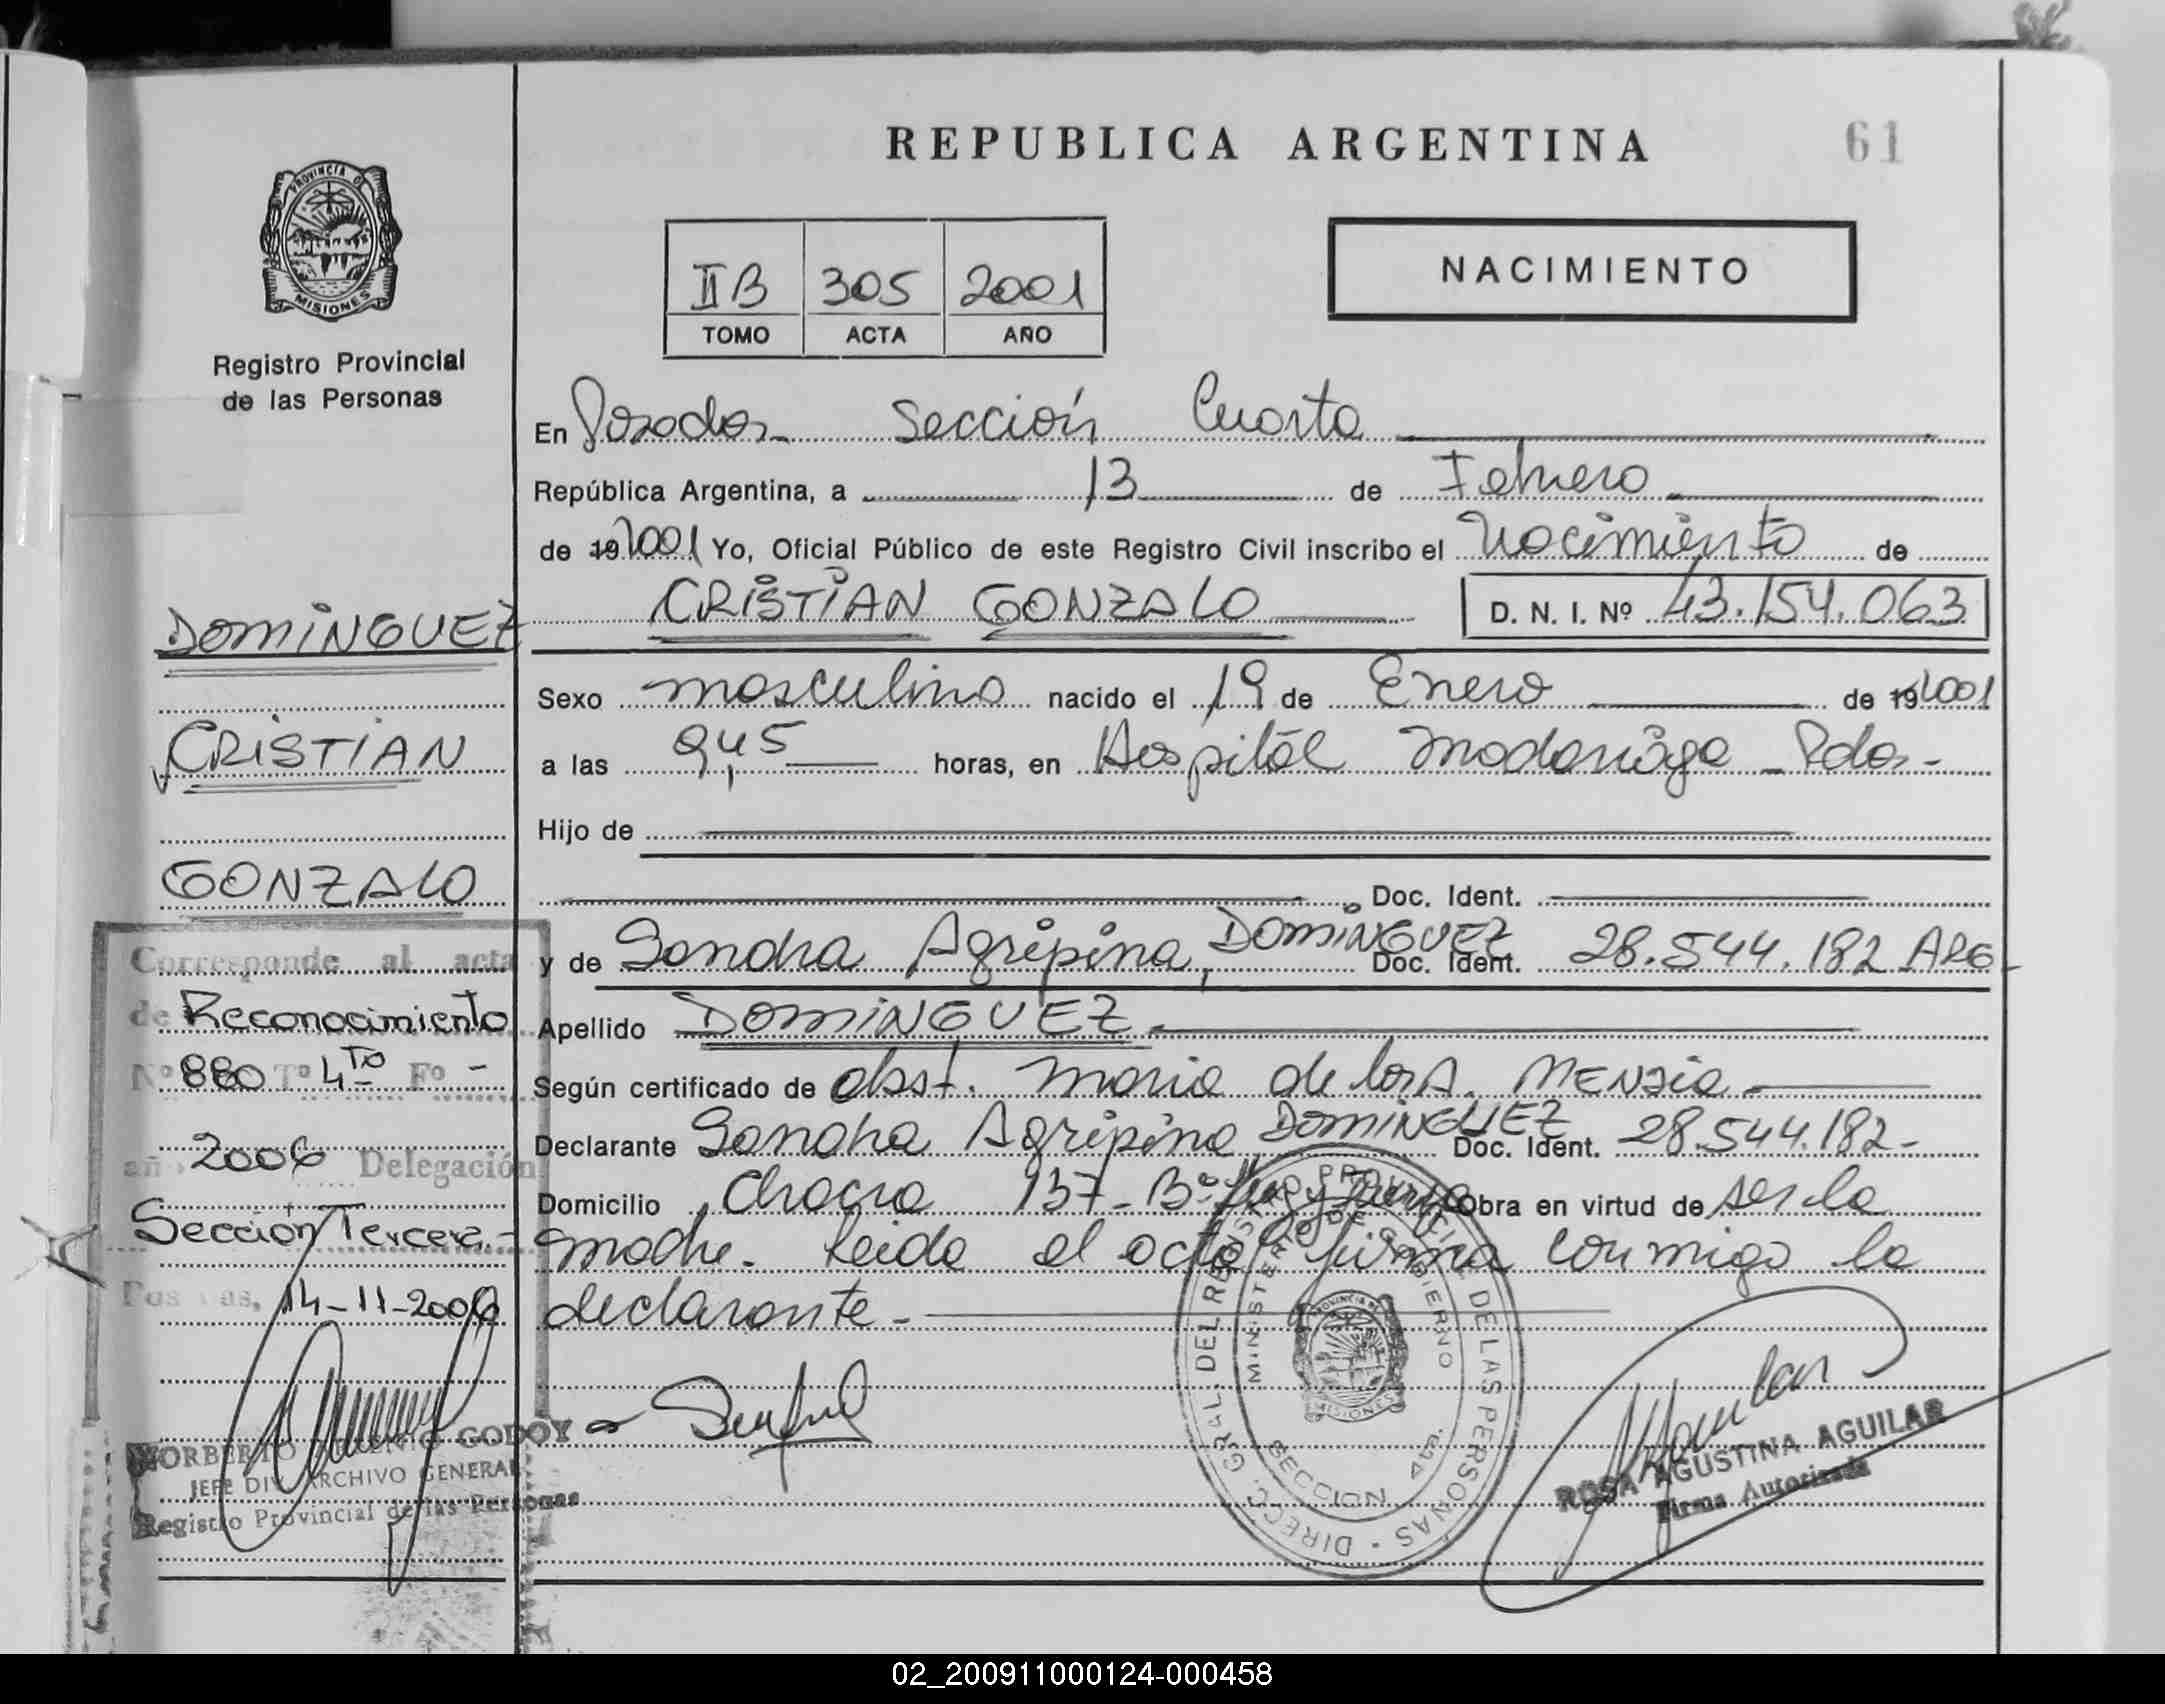 REPUBLICA ARGENTINA
61
PROVINCIA DE
MISIONES
Registro Provincial
de las Personas
II B 305 2001
TOMO ACTA AÑO
NACIMIENTO
En Posadas Sección Cuarta
República Argentina, a 13 de Febrero
de 19 2001 Yo, Oficial Público de este Registro Civil inscribo el Nacimiento de
CRISTIAN GONZALO D. N. I. Nº 43.154.063
Sexo masculino nacido el 19 de Enero de 19 2001
a las 9,45 horas, en Hospital Madariaga - Pdas -
Hijo de
Doc. Ident.
y de Sandra Agripina, DOMINGUEZ Doc. Ident. 28.544.182 ARG
Apellido DOMINGUEZ
Según certificado de obst. Maria de los A. MENSIA
Declarante Sandra Agripina DOMINGUEZ Doc. Ident. 28.544.182-
Domicilio Chacra 137 - Bº Obra en virtud de ser la
madre. Leida el acta firma conmigo la
declarante -
DOMINGUEZ
CRISTIAN
GONZALO
Corresponde al acta
de Reconocimiento
Nº 880 Tº 4to Fº -
año 2006 Delegación
Sección Tercera -
Posadas, 14-11-2006
NORBERTO GODOY
JEFE DIV. ARCHIVO GENERAL
Registro Provincial de las Personas
DIRECC. GRAL. DEL REGISTRO PROVINCIAL DE LAS PERSONAS
MINISTERIO DE GOBIERNO
PROVINCIA DE
MISIONES
SECCION 4ta.
Aguilar
ROSA AGUSTINA AGUILAR
Firma Autorizada
02_200911000124-000458